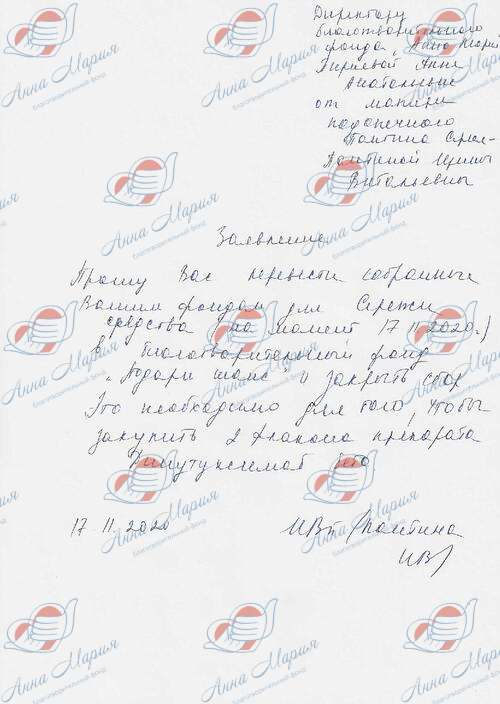 Директору
благотворительного
фонда "Анна Мария"
Анне
Анатольевне
от мамы
подопечного
Понтина Серг-
Понтиной Ирины
Витальевны
Заявление
Прошу Вас перевести собранные
Вашим фондом для Сережи
средства (на момент 17.11.2020г.)
В благотворительный фонд
"Подари шанс" и закрыть сбор
Это необходимо для того, чтобы
закупить 2 флакона препарата
Динутуксимаб бета
17.11.2020
ИВП /Понтина
ИВ/
Анна Мария
благотворительный фонд